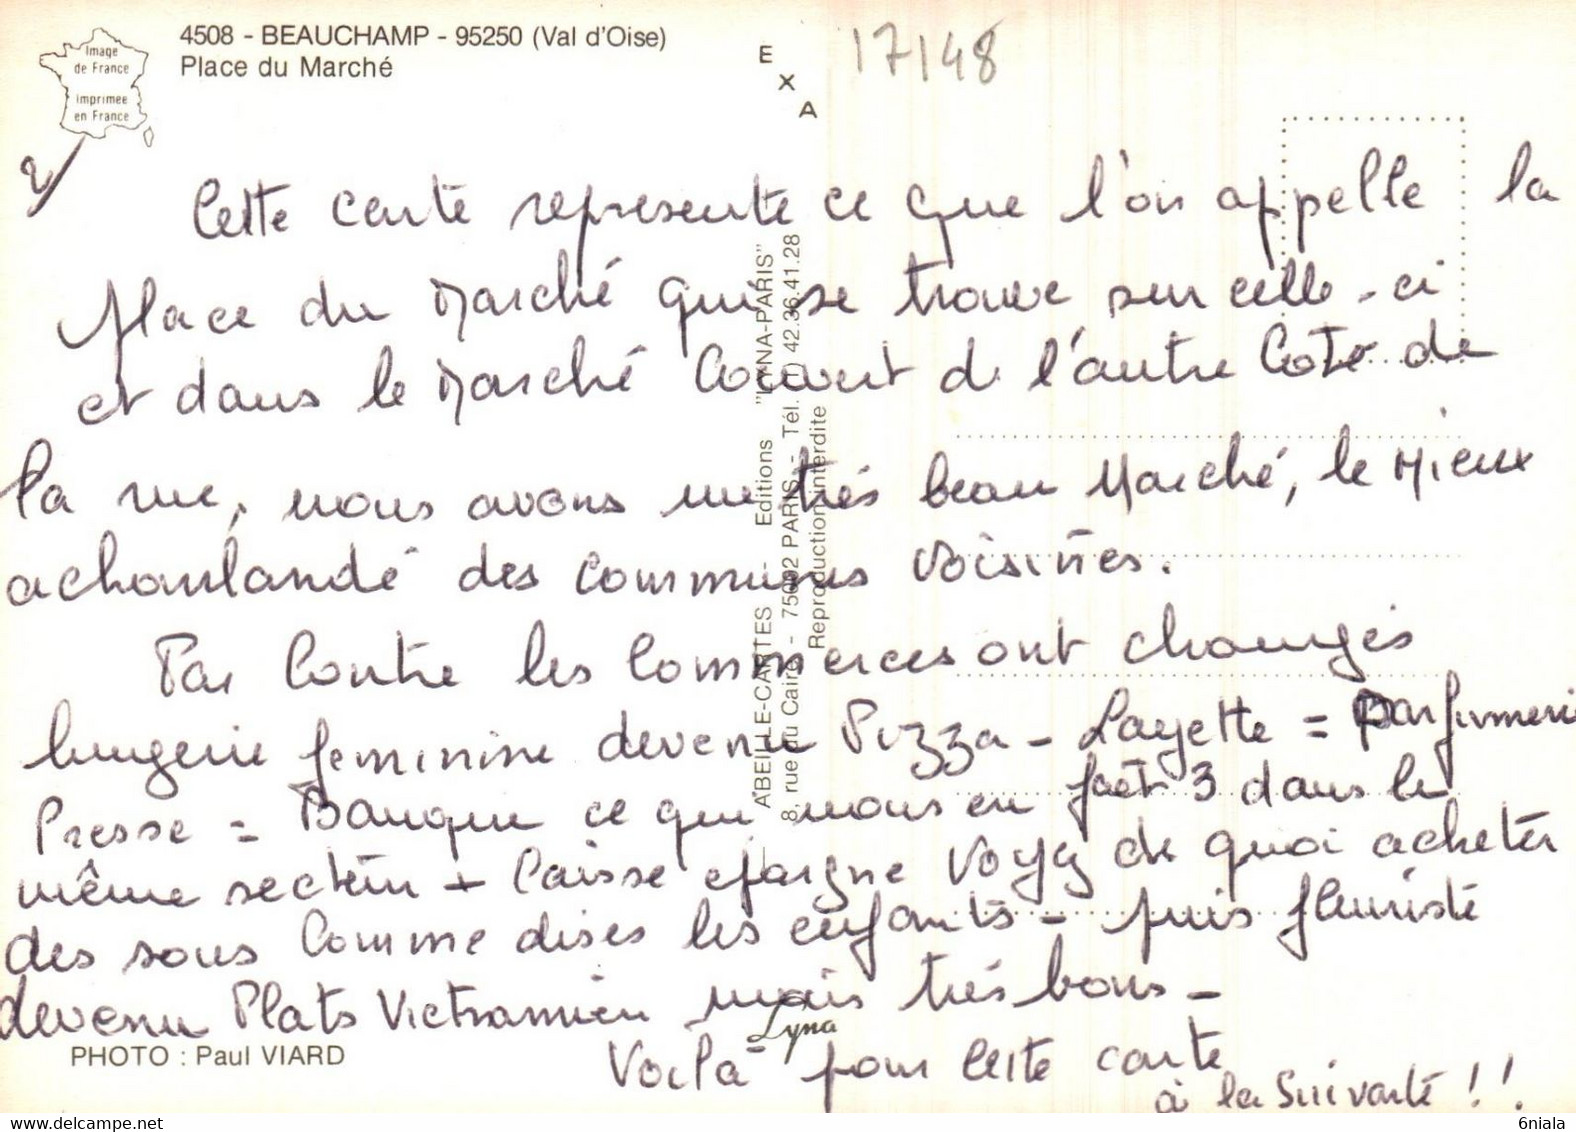 4508 - BEAUCHAMP - 95250 (Val d'Oise)
Place du Marché
Image
de France
Imprimée
en France
E
X
A
17148
2/
Cette carte represente ce que l'on appelle la
Place du Marché qui se trouve sur celle-ci
et dans le Marché Couvert de l'autre Coté de
la rue, nous avons un très beau Marché, le Mieux
achoulandé des communes voisines.
Par Contre les Commerces ont changés
lingerie feminine devenu Pizza - Layette = Parfumerie
Presse = Banque ce qui nous en fait 3 dans le
même secteur + Caisse epargne Voyez de quoi acheter
des sous Comme dises les enfants - puis fleuriste
devenu Plats Vietnamien mais très bons -
Voilà pour cette carte
à la Suivante !!
ABEILLE-CARTES - Editions "LYNA-PARIS"
8, rue du Caire - 75002 PARIS - Tél. (1) 42.36.41.28
Reproduction interdite
Lyna
PHOTO : Paul VIARD
6niala